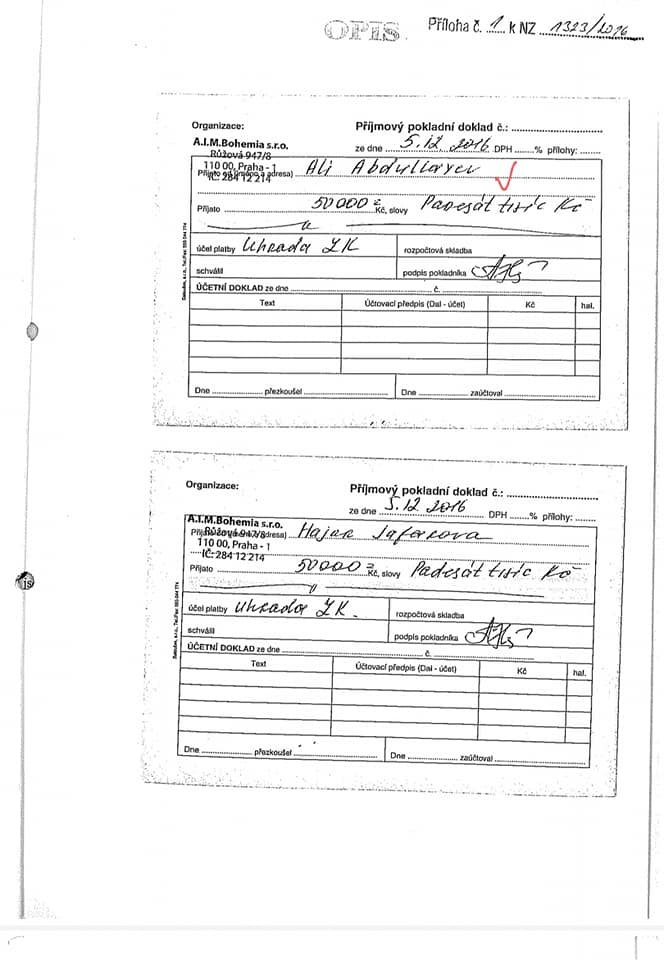 OPIS
Příloha č. 1 k NZ 1323/2016
Organizace:
Příjmový pokladní doklad č.:
A.I.M.Bohemia s.r.o.
ze dne 5.12 2016 DPH % přílohy:
Růžová 947/8
110 00, Praha - 1
Přijato od (jméno a adresa) Ali Abdullayev
IČ: 284 12 214
Přijato 50000 = Kč, slovy Padesát tisíc Kč
účel platby Uhrada ZK rozpočtová skladba
schválil podpis pokladníka
ÚČETNÍ DOKLAD ze dne č.
Text Účtovací předpis (Dal - účet) Kč hal.
Dne přezkoušel Dne zaúčtoval
Organizace:
Příjmový pokladní doklad č.:
ze dne 5.12 2016 DPH % přílohy:
A.I.M.Bohemia s.r.o.
Růžová 947/8
Přijato od (jméno a adresa) Hajar Jafarova
110 00, Praha - 1
IČ: 284 12 214
Přijato 50000 = Kč, slovy Padesát tisíc Kč
účel platby Uhrada ZK. rozpočtová skladba
schválil podpis pokladníka
ÚČETNÍ DOKLAD ze dne č.
Text Účtovací předpis (Dal - účet) Kč hal.
Dne přezkoušel Dne zaúčtoval